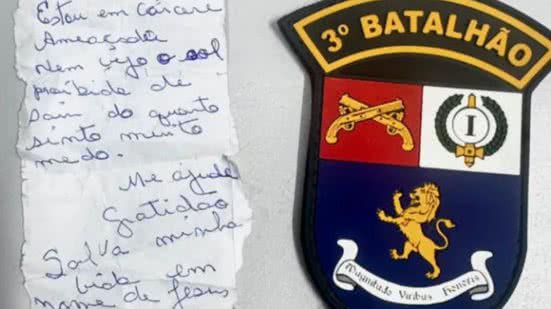 Estou em cárcere
Ameaçada
Nem vejo o sol
proibida de
sair do quarto
sinto muito
medo.
Me ajude
gratidão
Salva minha
vida em
nome de Jesus
3º BATALHÃO
I
Magnitudo Viribus Honoris